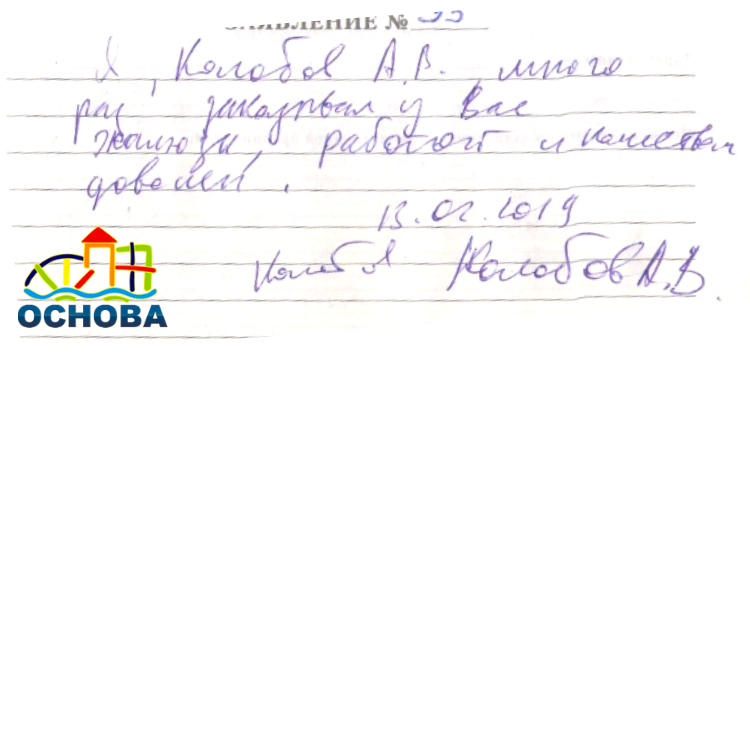 ЗАЯВЛЕНИЕ №
Я, Колобов А.В. много
раз заказывал у Вас
жалюзи, работой и качеством
доволен.
13.02.2019
Колобов А.В.
ОСНОВА